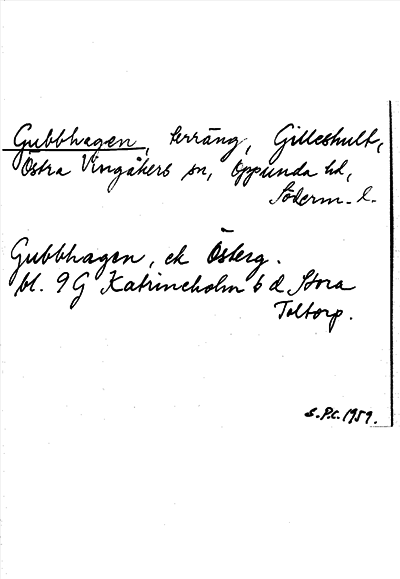 Gubbhagen, terräng, Gilleshult,
Östra Vingåkers sn, Oppunda hd,
Söderm. l.
Gubbhagen, ek Österg.
bl. 9G Katrineholm 6 d Stora
Toltorp.
S.P.C. 1959.